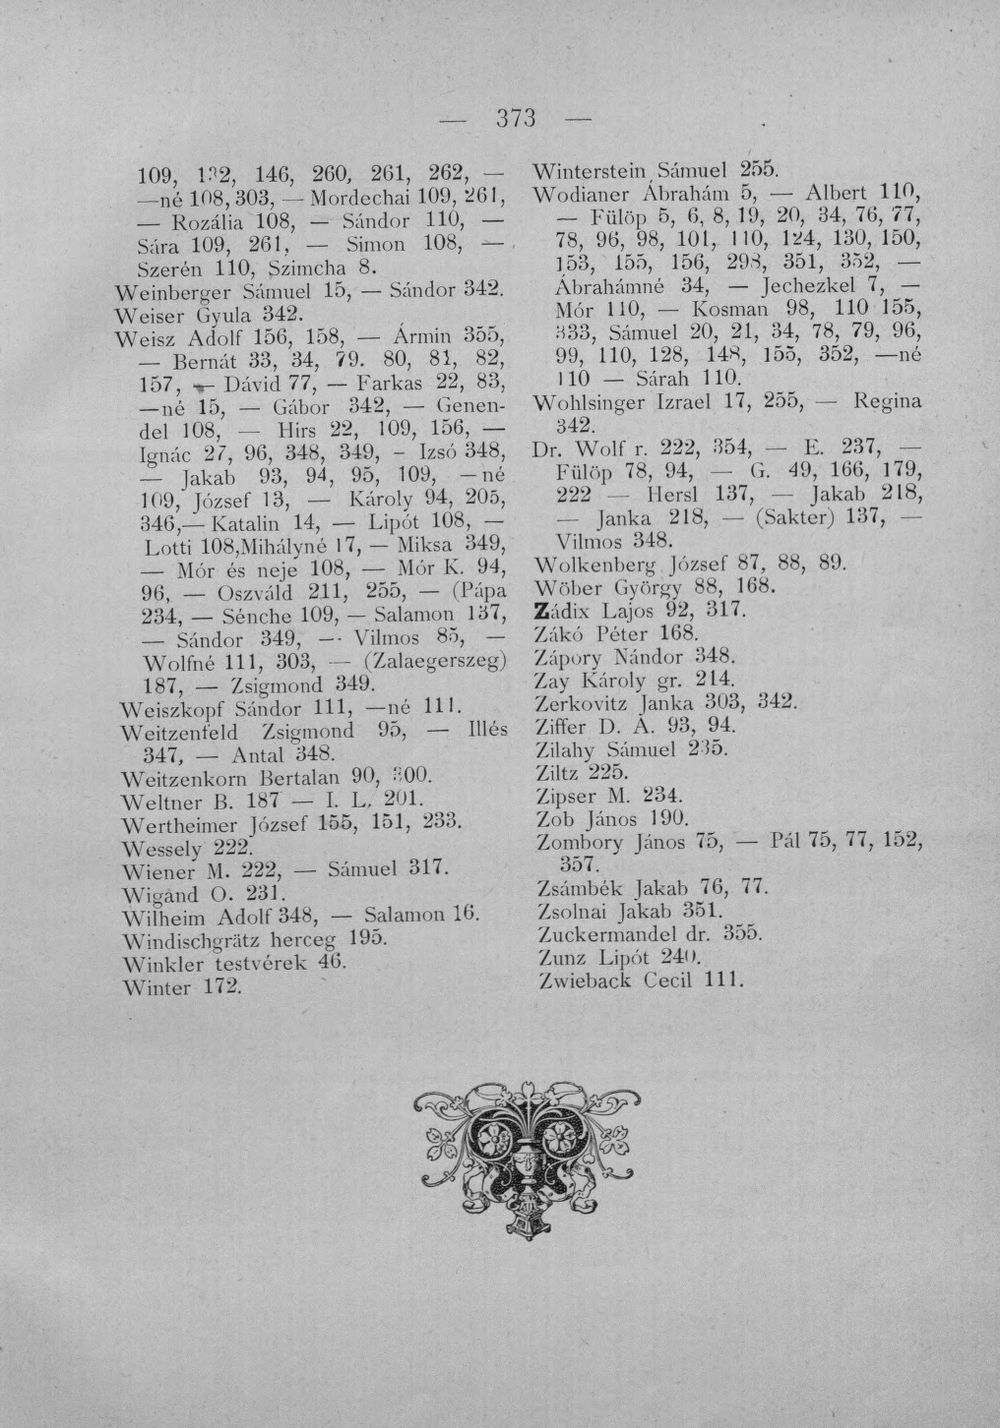 — 373 —
109, 132, 146, 260, 261, 262, —
—né 108, 303, — Mordechai 109, 261,
— Rozália 108, — Sándor 110, —
Sára 109, 261, — Simon 108, —
Szerén 110, Szimcha 8.
Weinberger Sámuel 15, — Sándor 342.
Weiser Gyula 342.
Weisz Adolf 156, 158, — Ármin 355,
— Bernát 33, 34, 79. 80, 81, 82,
157, — Dávid 77, — Farkas 22, 83,
—né 15, — Gábor 342, — Genen-
del 108, — Hirs 22, 109, 156, —
Ignác 27, 96, 348, 349, - Izsó 348,
— Jakab 93, 94, 95, 109, —né
109, József 13, — Károly 94, 205,
346,— Katalin 14, — Lipót 108, —
Lotti 108,Mihályné 17, — Miksa 349,
— Mór és neje 108, — Mór K. 94,
96, — Oszváld 211, 255, — (Pápa
234, — Sénche 109, — Salamon 137,
— Sándor 349, —· Vilmos 85, —
Wolfné 111, 303, — (Zalaegerszeg)
187, — Zsigmond 349.
Weiszkopf Sándor 111, —né 111.
Weitzenfeld Zsigmond 95, — Illés
347, — Antal 348.
Weitzenkorn Bertalan 90, 300.
Weltner B. 187 — I. L. 201.
Wertheimer József 155, 151, 233.
Wessely 222.
Wiener M. 222, — Sámuel 317.
Wigand O. 231.
Wilheim Adolf 348, — Salamon 16.
Windischgrätz herceg 195.
Winkler testvérek 46.
Winter 172.
Winterstein Sámuel 255.
Wodianer Ábrahám 5, — Albert 110,
— Fülöp 5, 6, 8, 19, 20, 34, 76, 77,
78, 96, 98, 101, 110, 124, 130, 150,
153, 155, 156, 298, 351, 352, —
Ábrahámné 34, — Jechezkel 7, —
Mór 110, — Kosman 98, 110 155,
333, Sámuel 20, 21, 34, 78, 79, 96,
99, 110, 128, 148, 155, 352, —né
110 — Sárah 110.
Wohlsinger Izrael 17, 255, — Regina
342.
Dr. Wolf r. 222, 354, — E. 237, —
Fülöp 78, 94, — G. 49, 166, 179,
222 — Hersl 137, — Jakab 218,
— Janka 218, — (Sakter) 137, —
Vilmos 348.
Wolkenberg József 87, 88, 89.
Wöber György 88, 168.
Zádix Lajos 92, 317.
Zákó Péter 168.
Zápory Nándor 348.
Zay Károly gr. 214.
Zerkovitz Janka 303, 342.
Ziffer D. Á. 93, 94.
Zilahy Sámuel 235.
Ziltz 225.
Zipser M. 234.
Zob János 190.
Zombory János 75, — Pál 75, 77, 152,
357.
Zsámbék Jakab 76, 77.
Zsolnai Jakab 351.
Zuckermandel dr. 355.
Zunz Lipót 240.
Zwieback Cecil 111.